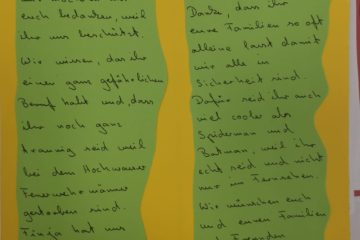 euch bedanken, weil
ihr uns beschützt.
Wir wissen, das ihr
einen ganz gefährlichen
Beruf habt und, dass
ihr noch ganz
traurig seid weil
bei dem Hochwasser
Feuerwehrmänner
gestorben sind.
hat uns
Danke, dass ihr
eure Familien so oft
alleine lasst damit
wir alle in
Sicherheit sind.
Dafür seid ihr auch
viel cooler als
Spiderman und
Batman, weil ihr
echt seid und nicht
nur im Fernsehen.
Wir wünschen euch
und euren Familien
Freunden